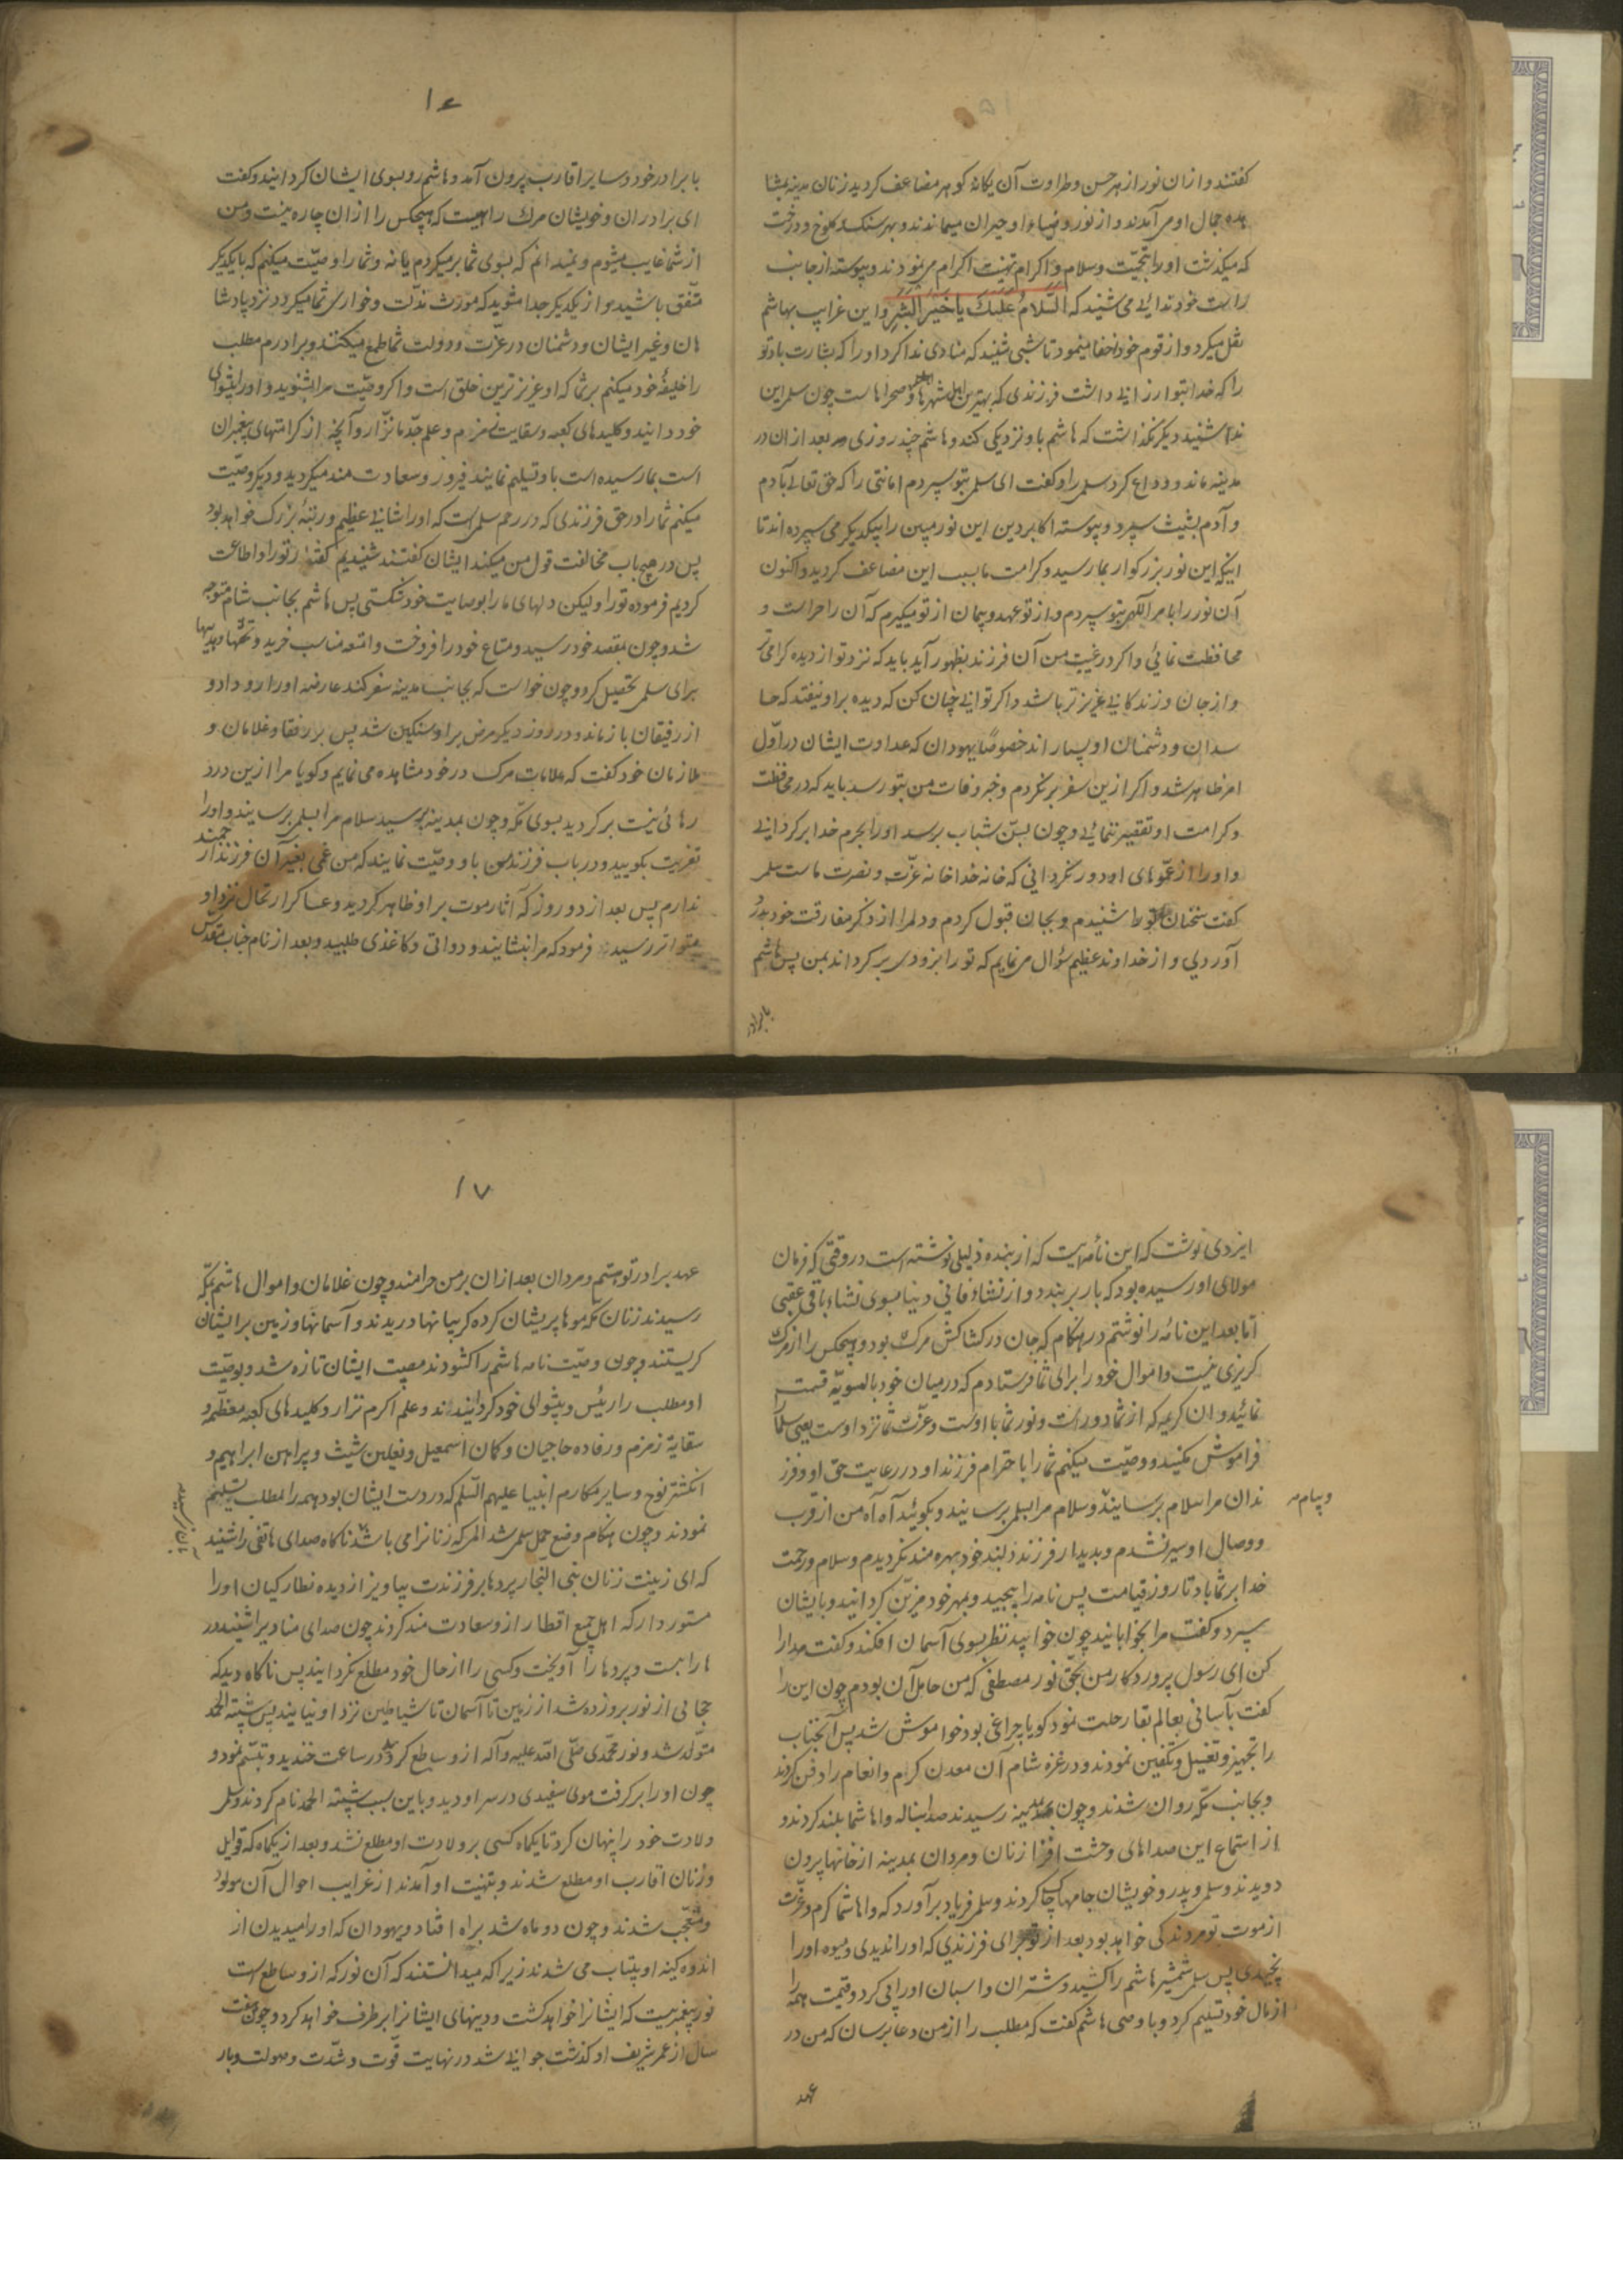 ۱۵
کفتند و ازان نور از هر حسن و طراوت آن یکانه کوهر مضاعف کردید زنان مدینه بمشا
هده جمال او می آمدند و از نور و ضیاء او حیران میماندند و بهر سنک و کلوخ و درخت
که میکذشت او را تحیّت و سلام و اکرام تهنیت اکرام می نمودند و پیوسته از جانب
راست خود ندائی می شنید که السّلام علیک یا خیر البشر و این غرایب بهاشم
نقل میکرد و از قوم خود اخفا مینمود تا شبی شنید که منادی ندا کرد او را که بشارت باد تو
را که خدا بتو ارزانی داشت فرزندی که بهترین اهل شهرها و صحراهاست چون سلمی این
ندا شنید دیکر نکذاشت که هاشم باو نزدیکی کند و هاشم چند روزی بعد ازان در
مدینه ماند و وداع کرد سلمی را و کفت ای سلمی بتو سپردم امانتی را که حق تعالی بآدم
و آدم بشیث سپرد و پیوسته اکابر دین این نور مبین را بیکدیکر می سپرده اند تا
اینکه این نور بزرکوار بما رسید و کرامت ما بسبب این مضاعف کردید و اکنون
آن نور را بامر الهی بتو سپردم و از تو عهد و پیمان از تو میکیرم که آن را حراست و
محافظت نمائی و اکر در غیبت من آن فرزند بظهور آید باید که نزد تو از دیده کرامی تر
و از جان و زندکانی عزیزتر باشد و اکر توانی چنان کن که دیده براو نیفتد که حا
سدان و دشمنان او بسیار اند خصوصًا یهودان که عداوت ایشان در اوّل
امر ظاهر شد و اکر ازین سفر برنکردم و خبر وفات من بتو رسد باید که در محافظت
و کرامت او تقصیر ننمائی و چون بسنّ شباب برسد او را بحرم خدا برکردانی
و او را از عموهای او دور نکردانی که خانه خدا خانه عزّت و نصرت ماست سلمی
کفت سخنان تو را شنیدم و بجان قبول کردم و دلمرا از ذکر مفارقت خود بدرد
آوردی و از خداوند عظیم سؤال می نمایم که تو را بزودی برکرداند بمن پس هاشم
با برادر
۱۶
با برادر خود و سایر اقارب بیرون آمد و هاشم رو بسوی ایشان کردانید و کفت
ای برادران و خویشان مرک راهیست که هیچکس را ازان چاره نیست و من
از شما غایب میشوم و نمیدانم که بسوی شما برمیکردم یا نه و شما را وصیّت میکنم که با یکدیکر
متّفق باشید و از یکدیکر جدا مشوید که مورث مذلّت و خواری شما میکردد نزد پادشا
هان و غیر ایشان و دشمنان در عزّت و دولت شما طمع میکنند و برادرم مطلب
را خلیفه خود میکنم بر شما که او عزیزترین خلق است و اکر وصیّت مرا بشنوید و او را پیشوای
خود دانید و کلیدهای کعبه و سقایت زمزم و علم جدّ ما نزار و آنچه از کرامتهای پیغمبران
است بما رسیده است باو تسلیم نمایند فیروز و سعادت مند میکردید و دیکر وصیّت
میکنم شما را در حق فرزندی که در رحم سلمی است که او را شانی عظیم و رتبه بزرک خواهد بود
پس در هیچ باب مخالفت قول من میکنید ایشان کفتند شنیدیم کفته تو را و اطاعت
کردیم فرموده تو را و لیکن دلهای ما را بوصایت خود شکستی پس هاشم بجانب شام متوجه
شد و چون بمقصد خود رسید و متاع خود را فروخت و امتعه مناسب خرید و تحفها و هدیّها
برای سلمی تحصیل کرد و چون خواست که بجانب مدینه سفر کند عارضه او را رو داد و
از رفیقان باز ماند و در روز دیکر مرض بر او سنکین شد پس بر رفقا و غلامان و
ملازمان خود کفت که علامات مرک در خود مشاهده می نمایم و کویا مرا ازین درد
رهائی نیست برکردید بسوی مکّه و چون بمدینه برسید سلام مرا بسلمی برسانید و او را
تعزیت بکویید و در باب فرزند من باو وصیّت نمایند که من غمی بغیر آن فرزند ارجمند
ندارم پس بعد از دو روز که آثار موت بر او ظاهر کردید و عساکر ارتحال نزد او
متواتر رسید فرمود که مرا بنشانید و دواتی و کاغذی طلبید و بعد از نام جناب مقدّس
ایزدی نوشت که این نامه ایست که از بنده ذلیلی نوشته است در وقتی که فرمان
مولای او رسیده بود که بار بربندد و از نشاءِ فانی دنیا بسوی نشاء باقی عقبی
امّا بعد این نامه را نوشتم در هنکام که جان در کشاکش مرک بود و هیچکس را از مرک
کریزی نیست و اموال خود را برای شما فرستادم که در میان خود بالسویّه قسمت
نمائید و ان کریمه که از شما دور است و نور شما با اوست و عزّت شما نزد اوست یعنی سلمی
فراموش مکنید و وصیّت میکنم شما را باحترام فرزند او و در رعایت حق او و فرز
ندان مرا سلام برسانید و سلام مرا بسلمی برسانید و بکوئید آه آه من از قرب
و پیام
و وصال او سیر نشدم و بدیدار فرزند دلبند خود بهره مند نکردیدم و سلام و رحمت
خدا بر شما باد تا روز قیامت پس نامه را پیچید و بمهر خود مزیّن کردانید و بایشان
سپرد و کفت مرا بخوابانید چون خوابید نظر بسوی آسمان افکند و کفت مدارا
کن ای رسول پروردکار من بحقّ نور مصطفی که من حامل آن بودم چون این را
کفت بآسانی بعالم بقا رحلت نمود کویا چراغی بود خواموش شد پس آنجناب
را تجهیز و تغسیل و تکفین نمودند و در غزه شام آن معدن کرم و انعام را دفن کردند
و بجانب مکّه روان شدند و چون بمدینه رسیدند صدا بناله وا هاشما بلند کردند و
از استماع این صداهای وحشت افزا زنان و مردان بمدینه از خانها بیرون
دویدند و سلمی و پدر و خویشان جامها چاک کردند و سلمی فریاد برآورد که وا هاشما کرم و عزّت
از موت تو مردند کی خواهد بود بعد از تو برای فرزندی که او را ندیدی و میوه او را
نچیدی پس سلمی شمشیر هاشم را کشید و شتران و اسبان او را پی کرد و قیمت همه را
از مال خود تسلیم کرد و با وصی هاشم کفت که مطلب را از من دعا برسان که من در
عهد
۱۷
عهد برادر تو هستم و مردان بعد ازان بر من حرامند و چون غلامان و اموال هاشم بمکّه
رسیدند زنان مکّه موها پریشان کرده کریبانها دریدند و آسمانها و زمین بر ایشان
کریستند و چون وصیّت نامه هاشم را کشودند مصیبت ایشان تازه شد و بوصیّت
او مطلب را رئیس و پیشوای خود کردانیدند و علم اکرم نزار و کلیدهای کعبه معظّمه و
سقایة زمزم و رفاده حاجیان و کمان اسمعیل و نعلین شیث و پیراهن ابراهیم و
انکشتر نوح و سایر مکارم انبیا علیهم السّلم که در دست ایشان بود همه را مطلب تسلیم
نمودند و چون هنکام وضع حمل سلمی شد المی که زنانرا می باشد ناکاه صدای هاتفی را شنید
بآن نرسید
که ای زینت زنان بنی النجار پردها بر فرزندت بیاویز از دیده نظارکیان او را
مستور دار که اهل جمیع اقطار ازو سعادت مند کردند چون صدای منادیرا شنید در
ها را بست و پردها را آویخت و کسی را از حال خود مطلع نکردانید پس ناکاه دید که
حجابی از نور برو زده شد از زمین تا آسمان تا شیاطین نزد او نیایند پس شیبة الحمد
متولّد شد و نور محمّدی صلّی الله علیه و آله ازو ساطع کردید در ساعت خندید و تبسّم نمود و
چون او را برکرفت موی سفیدی در سر او دید و باین سبب شیبة الحمد نام کردند و سلمی
ولادت خود را پنهان کرد تا یکماه کسی بر ولادت او مطلع نشد و بعد از یکماه که قوابل
و زنان اقارب او مطلع شدند و بتهنیت او آمدند از غرایب احوال آن مولود
متعجّب شدند و چون دو ماه شد براه افتاد و یهودان که او را میدیدن از
اندوه کینه او بیتاب می شدند زیرا که میدانستند که آن نور که ازو ساطع است
نور پیغمبریست که ایشانرا خواهد کشت و دینهای ایشانرا برطرف خواهد کرد و چون هفت
سال از عمر شریف او کذشت جوانی شد در نهایت قوّت و شدّت و صولت و بار